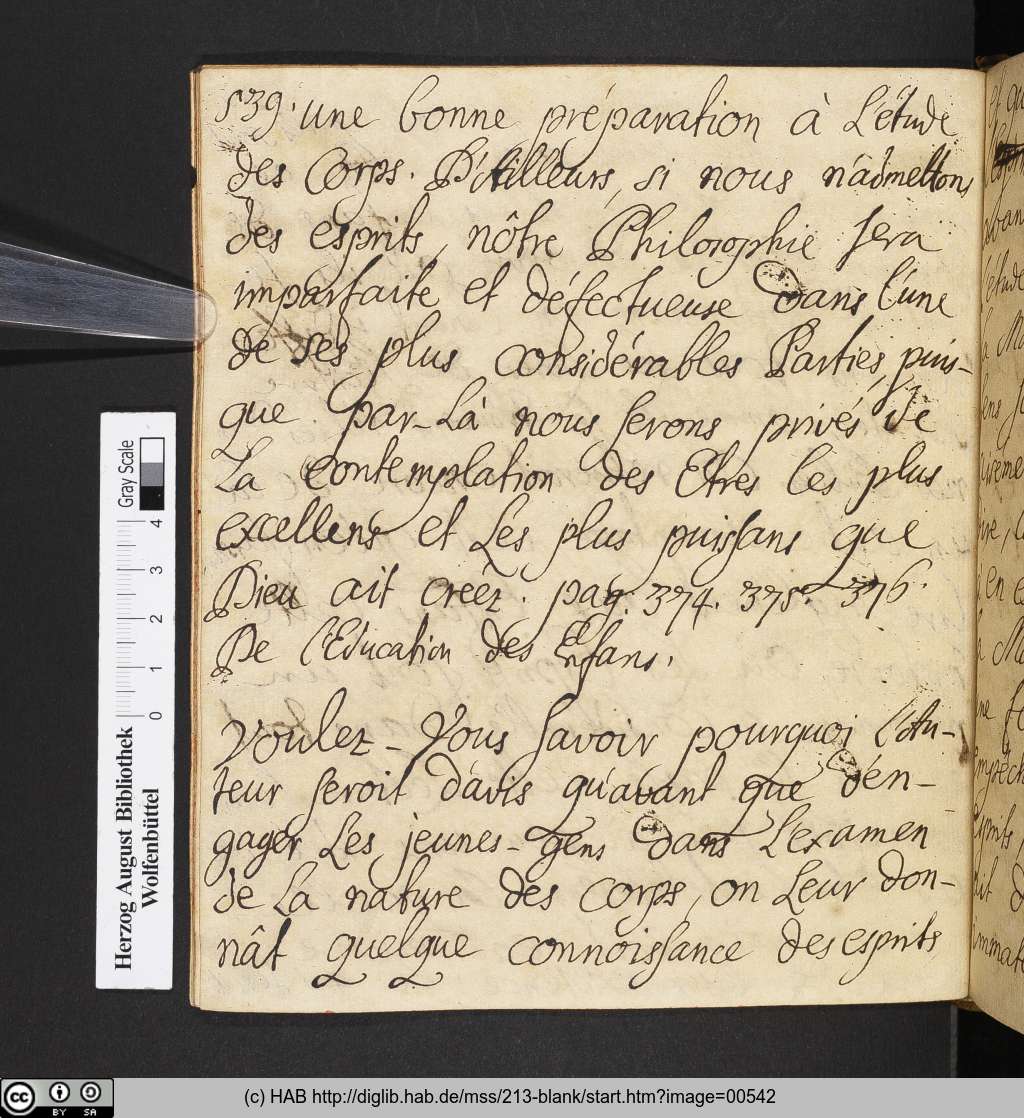 539. une bonne préparation à L'étude
des Corps. D'Ailleurs, si nous n'admettons
des esprits, nôtre Philosophie sera
imparfaite et défectueuse dans l'une
de ses plus considérables Parties, puis-
que par-Là nous serons privés de
La contemplation des Etres les plus
excellens et Les plus puissans que
Dieu ait créez. pag. 374. 375. 376.
De l'Education des Enfans.
Voulez-Vous savoir pourquoi l'Au-
teur seroit d'avis qu'avant que d'en-
gager Les jeunes-gens dans L'examen
de La nature des corps, on Leur don-
nât quelque connoissance des esprits
Gray Scale
4
3
2
1
0
Herzog August Bibliothek
Wolfenbüttel
cc BY SA
(c) HAB http://diglib.hab.de/mss/213-blank/start.htm?image=00542